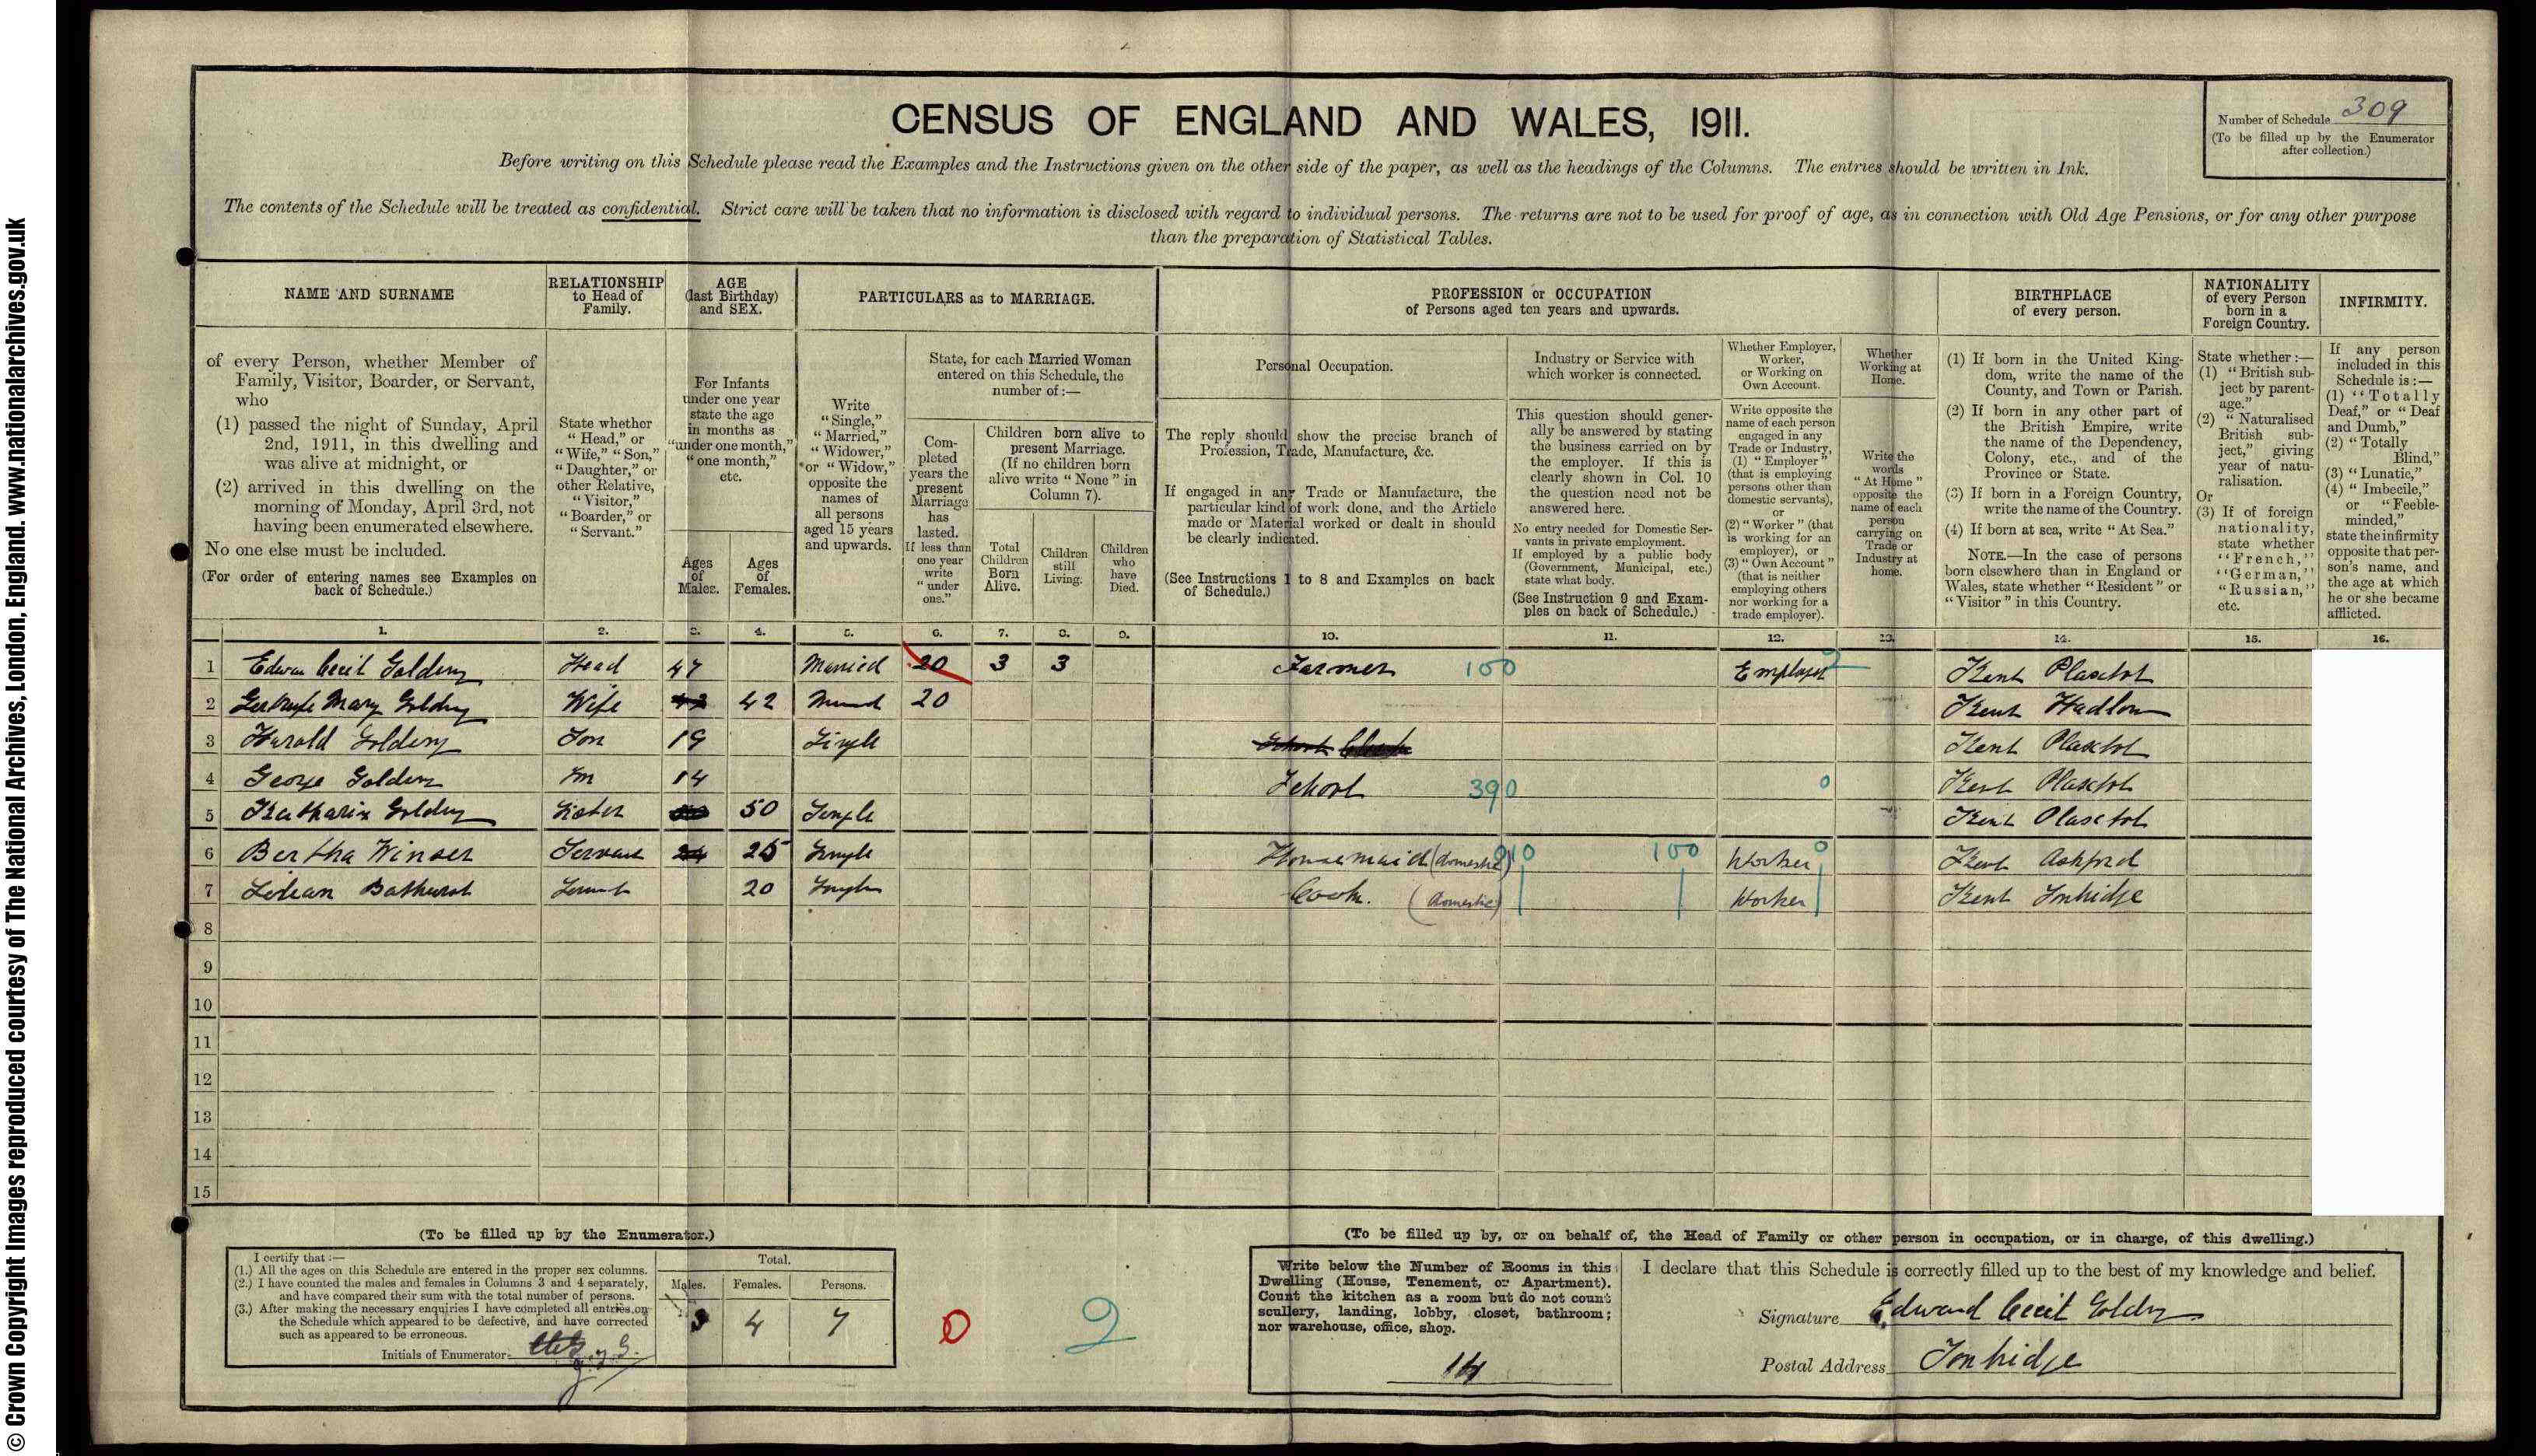 © Crown Copyright Images reproduced courtesy of The National Archives, London, England. www.nationalarchives.gov.uk
CENSUS OF ENGLAND AND WALES, 1911.
Number of Schedule 309
(To be filled up by the Enumerator
after collection.)
Before writing on this Schedule please read the Examples and the Instructions given on the other side of the paper, as well as the headings of the Columns. The entries should be written in Ink.
The contents of the Schedule will be treated as confidential. Strict care will be taken that no information is disclosed with regard to individual persons. The returns are not to be used for proof of age, as in connection with Old Age Pensions, or for any other purpose
than the preparation of Statistical Tables.
NAME AND SURNAME
of every Person, whether Member of
Family, Visitor, Boarder, or Servant,
who
(1) passed the night of Sunday, April
2nd, 1911, in this dwelling and
was alive at midnight, or
(2) arrived in this dwelling on the
morning of Monday, April 3rd, not
having been enumerated elsewhere.
No one else must be included.
(For order of entering names see Examples on
back of Schedule.)
RELATIONSHIP
to Head of
Family.
State whether
“Head,” or
“Wife,” “Son,”
“Daughter,” or
other Relative,
“Visitor,”
“Boarder,” or
“Servant.”
AGE
(last Birthday)
and SEX.
For Infants
under one year
state the age
in months as
“under one month,”
“one month,”
etc.
Ages
of
Males.
Ages
of
Females.
PARTICULARS as to MARRIAGE.
Write
“Single,”
“Married,”
“Widower,”
or “Widow,”
opposite the
names of
all persons
aged 15 years
and upwards.
State, for each Married Woman
entered on this Schedule, the
number of:—
Com-
pleted
years the
present
Marriage
has
lasted.
If less than
one year
write
“under
one.”
Children born alive to
present Marriage.
(If no children born
alive write “None” in
Column 7).
Total
Children
Born
Alive.
Children
still
Living.
Children
who
have
Died.
PROFESSION or OCCUPATION
of Persons aged ten years and upwards.
Personal Occupation.
The reply should show the precise branch of
Profession, Trade, Manufacture, &c.
If engaged in any Trade or Manufacture, the
particular kind of work done, and the Article
made or Material worked or dealt in should
be clearly indicated.
(See Instructions 1 to 8 and Examples on back
of Schedule.)
Industry or Service with
which worker is connected.
This question should gener-
ally be answered by stating
the business carried on by
the employer. If this is
clearly shown in Col. 10
the question need not be
answered here.
No entry needed for Domestic Ser-
vants in private employment.
If employed by a public body
(Government, Municipal, etc.)
state what body.
(See Instruction 9 and Exam-
ples on back of Schedule.)
Whether Employer,
Worker,
or Working on
Own Account.
Write opposite the
name of each person
engaged in any
Trade or Industry,
(1) “Employer”
(that is employing
persons other than
domestic servants),
or
(2) “Worker” (that
is working for an
employer), or
(3) “Own Account”
(that is neither
employing others
nor working for a
trade employer).
Whether
Working at
Home.
Write the
words
“At Home”
opposite the
name of each
person
carrying on
Trade or
Industry at
home.
BIRTHPLACE
of every person.
(1) If born in the United King-
dom, write the name of the
County, and Town or Parish.
(2) If born in any other part of
the British Empire, write
the name of the Dependency,
Colony, etc., and of the
Province or State.
(3) If born in a Foreign Country,
write the name of the Country.
(4) If born at sea, write “At Sea.”
NOTE.—In the case of persons
born elsewhere than in England or
Wales, state whether “Resident” or
“Visitor” in this Country.
NATIONALITY
of every Person
born in a
Foreign Country.
State whether:—
(1) “British sub-
ject by parent-
age.”
(2) “Naturalised
British sub-
ject,” giving
year of natu-
ralisation.
Or
(3) If of foreign
nationality,
state whether
“French,”
“German,”
“Russian,”
etc.
INFIRMITY.
If any person
included in this
Schedule is:—
(1) “Totally
Deaf,” or “Deaf
and Dumb,”
(2) “Totally
Blind,”
(3) “Lunatic,”
(4) “Imbecile,”
or “Feeble-
minded,”
state the infirmity
opposite that per-
son's name, and
the age at which
he or she became
afflicted.
1. 2. 3. 4. 5. 6. 7. 8. 9. 10. 11. 12. 13. 14. 15. 16.
1 Edward Cecil Golding Head 47 Married 20 3 3 Farmer 100 Employer 2 Kent Plaxtol
2 Gertrude Mary Golding Wife 42 Married 20 Kent Hadlow
3 Harold Golding Son 19 Single Kent Plaxtol
4 George Golding Son 14 School 390 0 Kent Plaxtol
5 Katharine Golding Sister 50 Single Kent Plaxtol
6 Bertha Winser Servant 25 Single Housemaid (domestic) 010 100 Worker 0 Kent Ashford
7 Lilian Bathurst Servant 20 Single Cook. (domestic) Worker Kent Tonbridge
8
9
10
11
12
13
14
15
(To be filled up by the Enumerator.)
I certify that:—
(1.) All the ages on this Schedule are entered in the proper sex columns.
(2.) I have counted the males and females in Columns 3 and 4 separately,
and have compared their sum with the total number of persons.
(3.) After making the necessary enquiries I have completed all entries on
the Schedule which appeared to be defective, and have corrected
such as appeared to be erroneous.
Initials of Enumerator
Total.
Males. Females. Persons.
3 4 7
0 2
(To be filled up by, or on behalf of, the Head of Family or other person in occupation, or in charge, of this dwelling.)
Write below the Number of Rooms in this
Dwelling (House, Tenement, or Apartment).
Count the kitchen as a room but do not count
scullery, landing, lobby, closet, bathroom;
nor warehouse, office, shop.
14
I declare that this Schedule is correctly filled up to the best of my knowledge and belief.
Signature Edward Cecil Golding
Postal Address Tonbridge